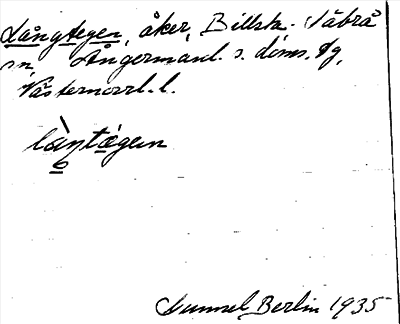 Långtegen, åker, Billsta. Säbrå
sn, Ångermanl. s. doms. fg,
Västernorrl. l.
làŋtégen
Gunnel Berlin 1935